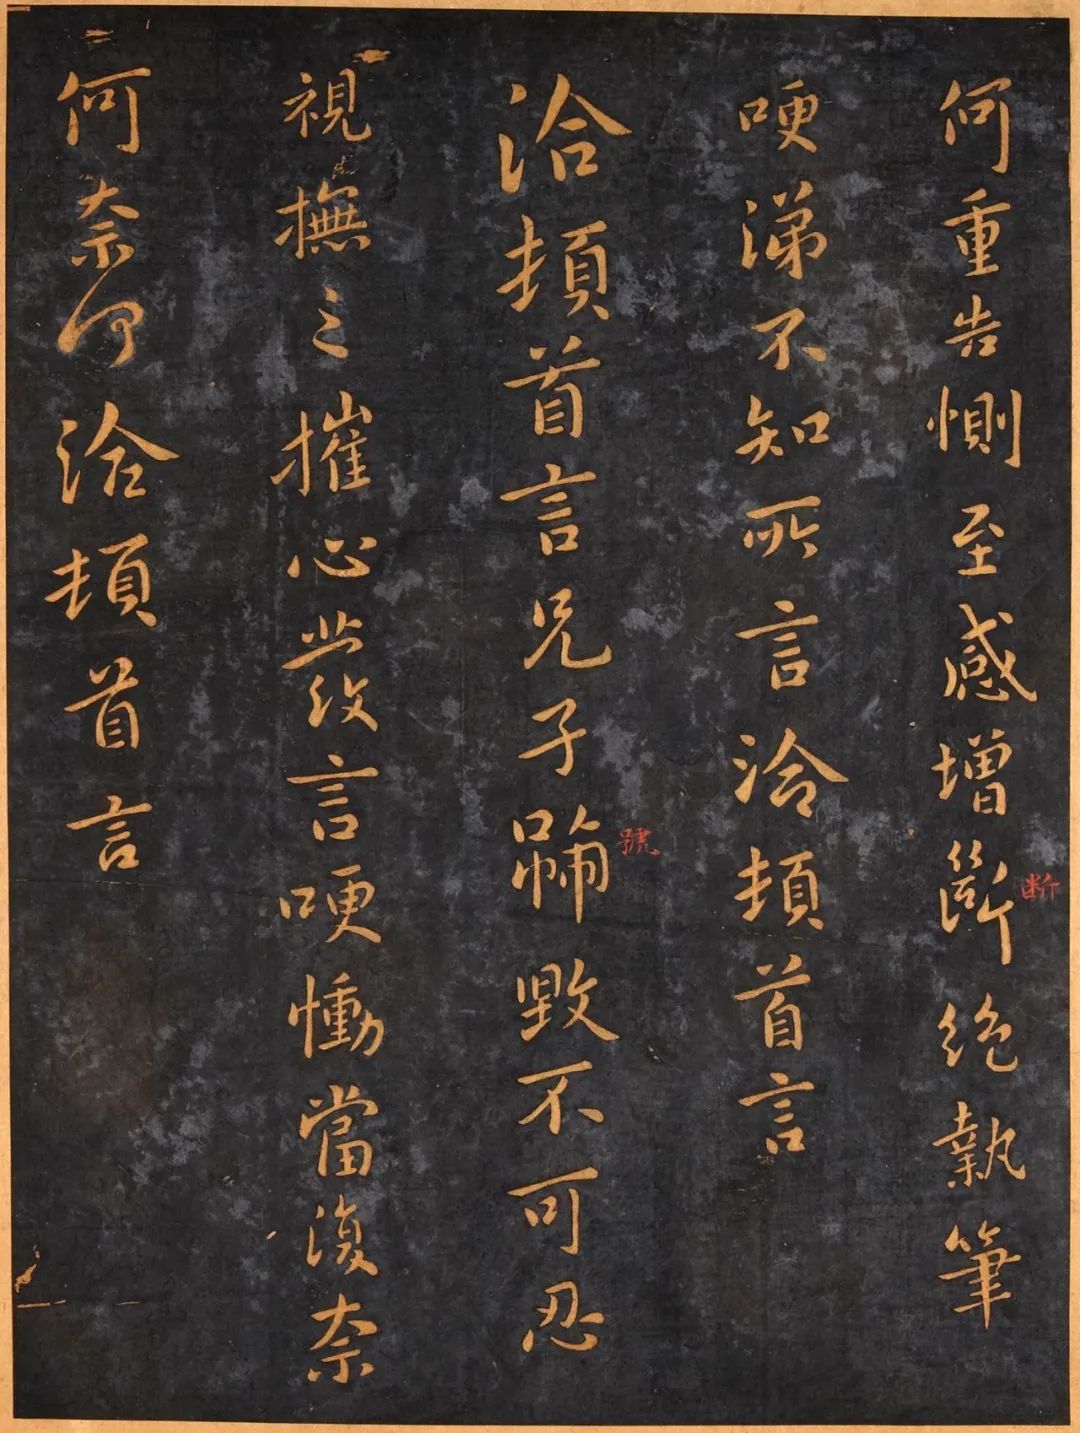 何重告惻至感增斷絶執筆
断
哽涕不知所言洽頓首言
洽頓首言兄子號毀不可忍
號
視撫之摧心發言哽慟當復奈
何奈何洽頓首言